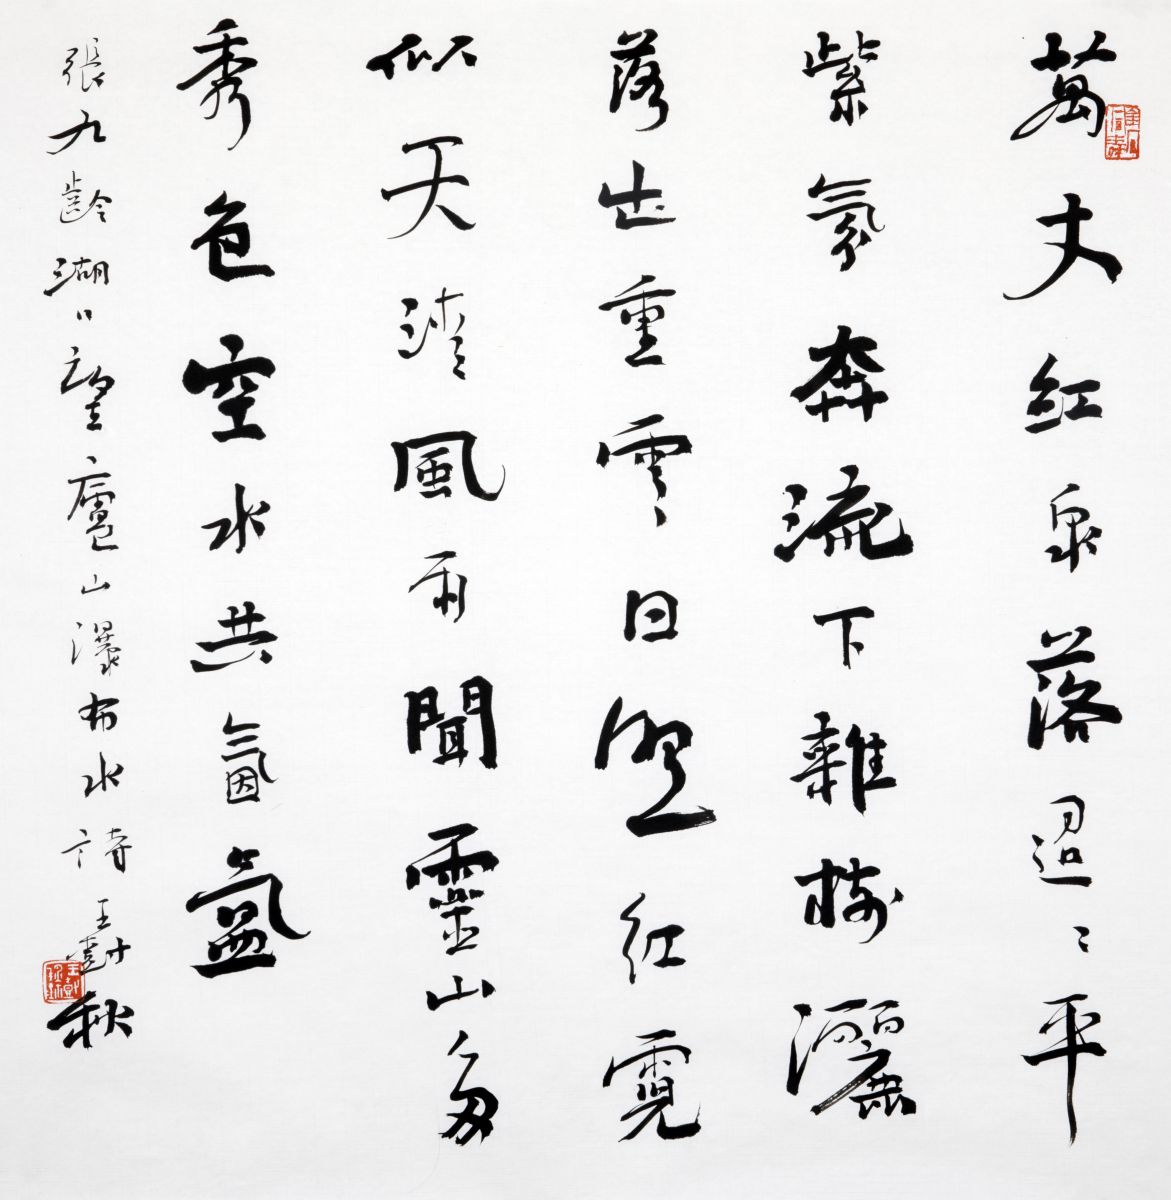 萬丈紅泉落迢〻平
紫氛奔流下雜樹灑
落出重雲日照紅霓
似天清風雨聞靈山多
秀色空水共氤氳
張九齡湖口望廬山瀑布水詩王尌秋